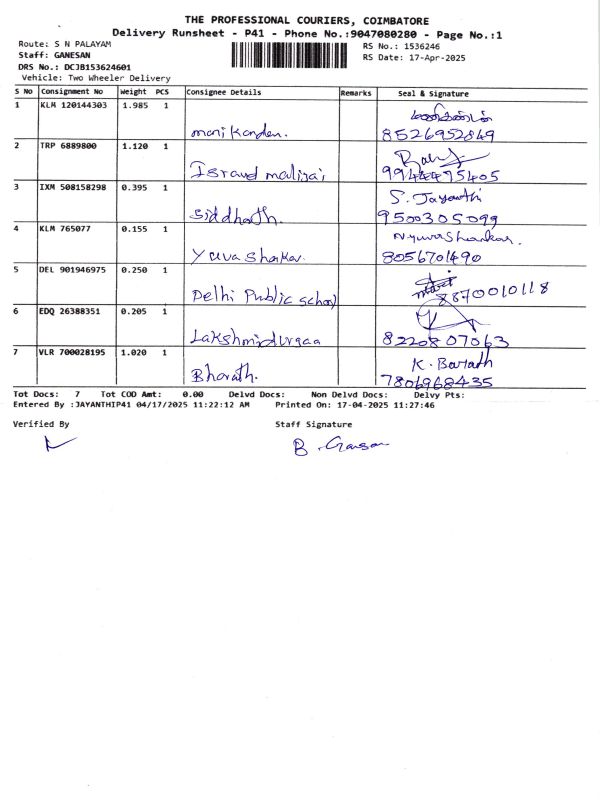 THE PROFESSIONAL COURIERS, COIMBATORE
Delivery Runsheet - P41 - Phone No.:9047080280 - Page No.:1
Route: S N PALAYAM RS No.: 1536246
Staff: GANESAN RS Date: 17-Apr-2025
DRS No.: DCJB153624601
Vehicle: Two Wheeler Delivery
S No Consignment No Weight PCS Consignee Details Remarks Seal & Signature
1 KLM 120144303 1.985 1
manikandan. 8526952849
2 TRP 6889800 1.120 1
9944475405
3 IXM 508158298 0.395 1 S. Jayanthi
Siddharth. 9500305099
4 KLM 765077 0.155 1 N yuva Shankar.
Yuva Shankar. 8056701490
5 DEL 901946975 0.250 1
Delhi Public school 8870010118
6 EDQ 26388351 0.205 1
Lakshmidurgaa 8220807063
7 VLR 700028195 1.020 1 K. Barath
Bharath. 7806968435
Tot Docs: 7 Tot COD Amt: 0.00 Delvd Docs: Non Delvd Docs: Delvy Pts:
Entered By :JAYANTHIP41 04/17/2025 11:22:12 AM Printed On: 17-04-2025 11:27:46
Verified By Staff Signature
B. Ganesan